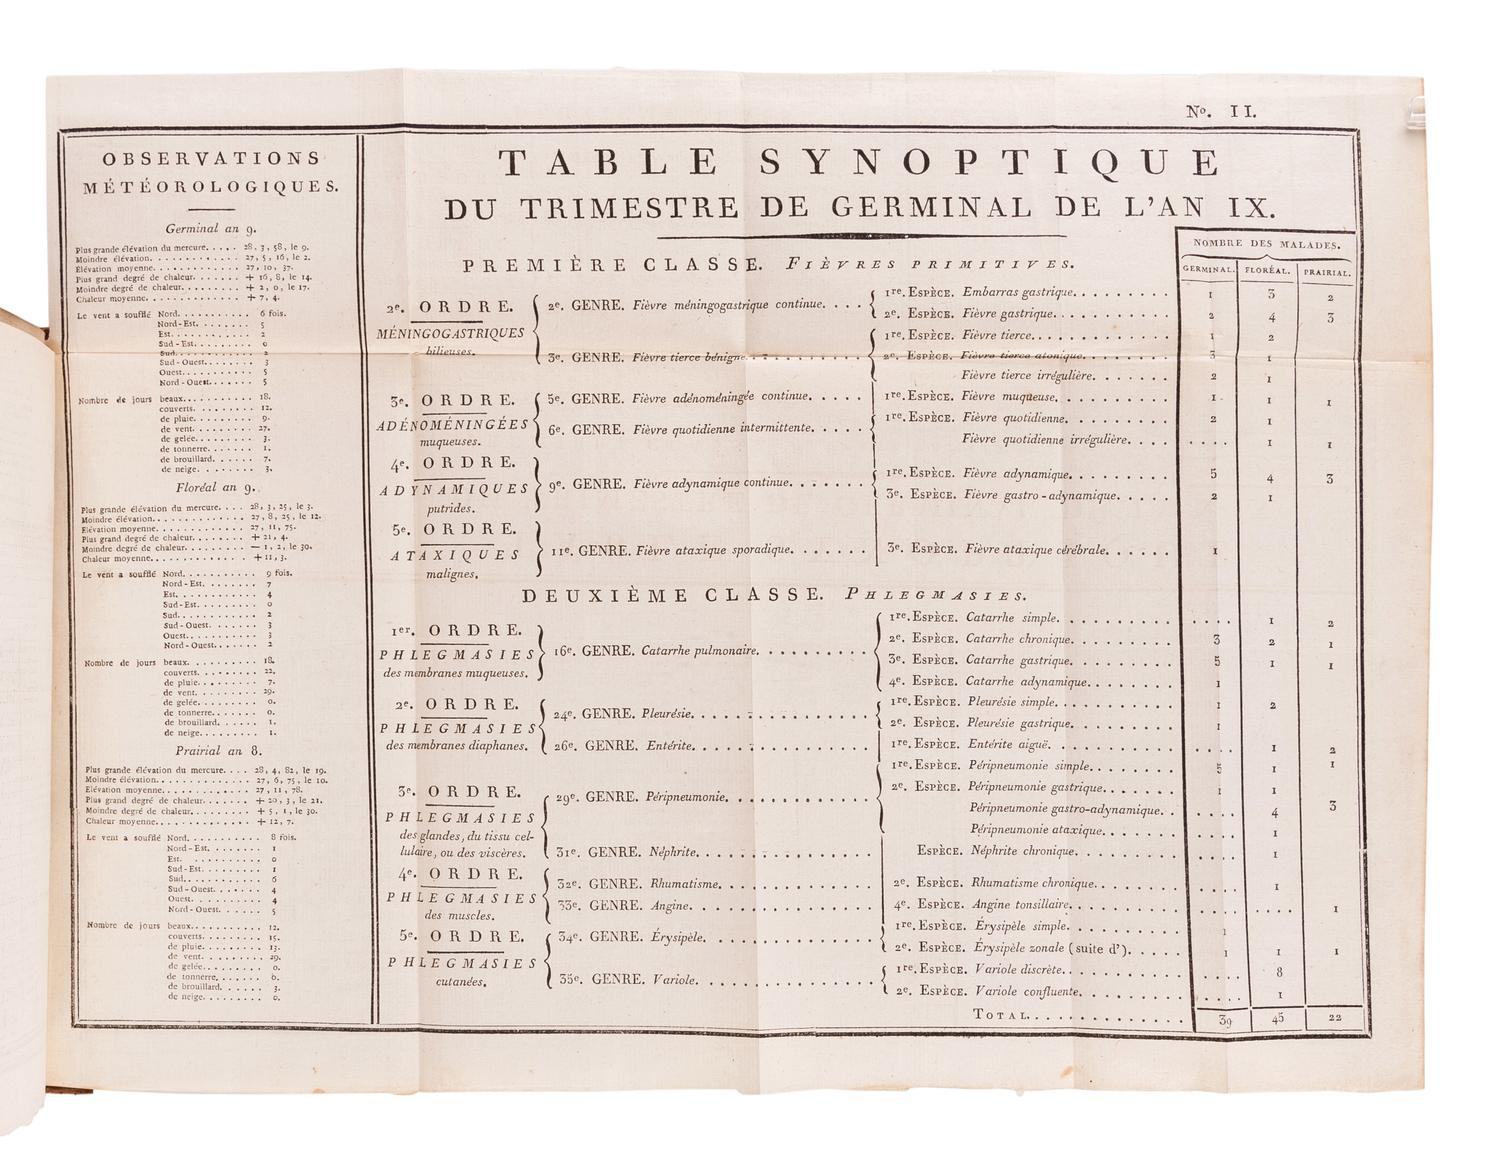 No. II.
OBSERVATIONS
MÉTÉOROLOGIQUES.
Germinal an 9.
Plus grande élévation du mercure..... 28, 3, 58, le 9.
Moindre élévation............. 27, 5, 16, le 2.
Elévation moyenne............ 27, 10, 37.
Plus grand degré de chaleur...... + 16, 8, le 14.
Moindre degré de chaleur....... + 2, 0, le 17.
Chaleur moyenne............. + 7, 4.
Le vent a soufflé Nord.......... 6 fois.
Nord-Est........ 5
Est........... 2
Sud-Est........ 0
Sud........... 2
Sud-Ouest....... 3
Ouest.......... 5
Nord-Ouest...... 5
Nombre de jours beaux.......... 18.
couverts........ 12.
de pluie........ 9.
de vent......... 27.
de gelée........ 3.
de tonnerre...... 1.
de brouillard..... 7.
de neige........ 3.
Floréal an 9.
Plus grande élévation du mercure.... 28, 3, 25, le 3.
Moindre élévation............. 27, 8, 25, le 12.
Elévation moyenne............ 27, 11, 75.
Plus grand degré de chaleur...... + 21, 4.
Moindre degré de chaleur....... — 1, 2, le 30.
Chaleur moyenne............. + 11, 3.
Le vent a soufflé Nord.......... 9 fois.
Nord-Est........ 7
Est........... 4
Sud-Est........ 0
Sud........... 2
Sud-Ouest....... 3
Ouest.......... 3
Nord-Ouest...... 2
Nombre de jours beaux.......... 18.
couverts........ 22.
de pluie........ 7.
de vent......... 29.
de gelée........ 0.
de tonnerre...... 0.
de brouillard..... 1.
de neige........ 1.
Prairial an 8.
Plus grande élévation du mercure.... 28, 4, 82, le 19.
Moindre élévation............. 27, 6, 75, le 10.
Elévation moyenne............ 27, 11, 78.
Plus grand degré de chaleur...... + 20, 3, le 21.
Moindre degré de chaleur....... + 5, 1, le 30.
Chaleur moyenne............. + 12, 7.
Le vent a soufflé Nord.......... 8 fois.
Nord-Est........ 1
Est........... 0
Sud-Est........ 1
Sud........... 6
Sud-Ouest....... 4
Ouest.......... 4
Nord-Ouest...... 5
Nombre de jours beaux.......... 12.
couverts........ 15.
de pluie........ 13.
de vent......... 29.
de gelée........ 0.
de tonnerre...... 6.
de brouillard..... 3.
de neige........ 0.
TABLE SYNOPTIQUE
DU TRIMESTRE DE GERMINAL DE L'AN IX.
NOMBRE DES MALADES.
GERMINAL. FLORÉAL. PRAIRIAL.
PREMIÈRE CLASSE. FIÈVRES PRIMITIVES.
2e. ORDRE.
MÉNINGOGASTRIQUES
bilieuses.
2e. GENRE. Fièvre méningogastrique continue.....
1re. ESPÈCE. Embarras gastrique.......... 1 3 2
2e. ESPÈCE. Fièvre gastrique............ 2 4 3
3e. GENRE. Fièvre tierce bénigne...........
1re. ESPÈCE. Fièvre tierce.............. 1 2
2e. ESPÈCE. Fièvre tierce atonique......... 3 1
Fièvre tierce irrégulière........ 2 1
3e. ORDRE.
ADÉNOMÉNINGÉES
muqueuses.
5e. GENRE. Fièvre adénoméningée continue......
1re. ESPÈCE. Fièvre muqueuse........... 1 1 1
6e. GENRE. Fièvre quotidienne intermittente.....
1re. ESPÈCE. Fièvre quotidienne.......... 2 1
Fièvre quotidienne irrégulière.... .... 1 1
4e. ORDRE.
ADYNAMIQUES
putrides.
9e. GENRE. Fièvre adynamique continue.......
1re. ESPÈCE. Fièvre adynamique.......... 5 4 3
3e. ESPÈCE. Fièvre gastro-adynamique..... 2 1
5e. ORDRE.
ATAXIQUES
malignes.
11e. GENRE. Fièvre ataxique sporadique.......
3e. ESPÈCE. Fièvre ataxique cérébrale...... 1
DEUXIÈME CLASSE. PHLEGMASIES.
1er. ORDRE.
PHLEGMASIES
des membranes muqueuses.
16e. GENRE. Catarrhe pulmonaire..........
1re. ESPÈCE. Catarrhe simple............ .... 1 2
2e. ESPÈCE. Catarrhe chronique......... 3 2 1
3e. ESPÈCE. Catarrhe gastrique.......... 5 1 1
4e. ESPÈCE. Catarrhe adynamique........ 1
2e. ORDRE.
PHLEGMASIES
des membranes diaphanes.
24e. GENRE. Pleurésie................
1re. ESPÈCE. Pleurésie simple........... 1 2
2e. ESPÈCE. Pleurésie gastrique.......... 1
26e. GENRE. Entérite................
1re. ESPÈCE. Entérite aiguë............ .... 1 2
3e. ORDRE.
PHLEGMASIES
des glandes, du tissu cel-
lulaire, ou des viscères.
29e. GENRE. Péripneumonie.............
1re. ESPÈCE. Péripneumonie simple........ 5 1 1
2e. ESPÈCE. Péripneumonie gastrique....... 1 1
Péripneumonie gastro-adynamique.. .... 4 3
Péripneumonie ataxique........ .... 1
31e. GENRE. Néphrite................
ESPÈCE. Néphrite chronique.......... .... 1
4e. ORDRE.
PHLEGMASIES
des muscles.
32e. GENRE. Rhumatisme..............
2e. ESPÈCE. Rhumatisme chronique........ .... 1
33e. GENRE. Angine.................
4e. ESPÈCE. Angine tonsillaire........... .... .... 1
5e. ORDRE.
PHLEGMASIES
cutanées.
34e. GENRE. Érysipèle................
1re. ESPÈCE. Érysipèle simple........... 1
2e. ESPÈCE. Érysipèle zonale (suite d')...... 1 1 1
35e. GENRE. Variole.................
1re. ESPÈCE. Variole discrète............ .... 8
2e. ESPÈCE. Variole confluente.......... .... 1
TOTAL............... 39 45 22